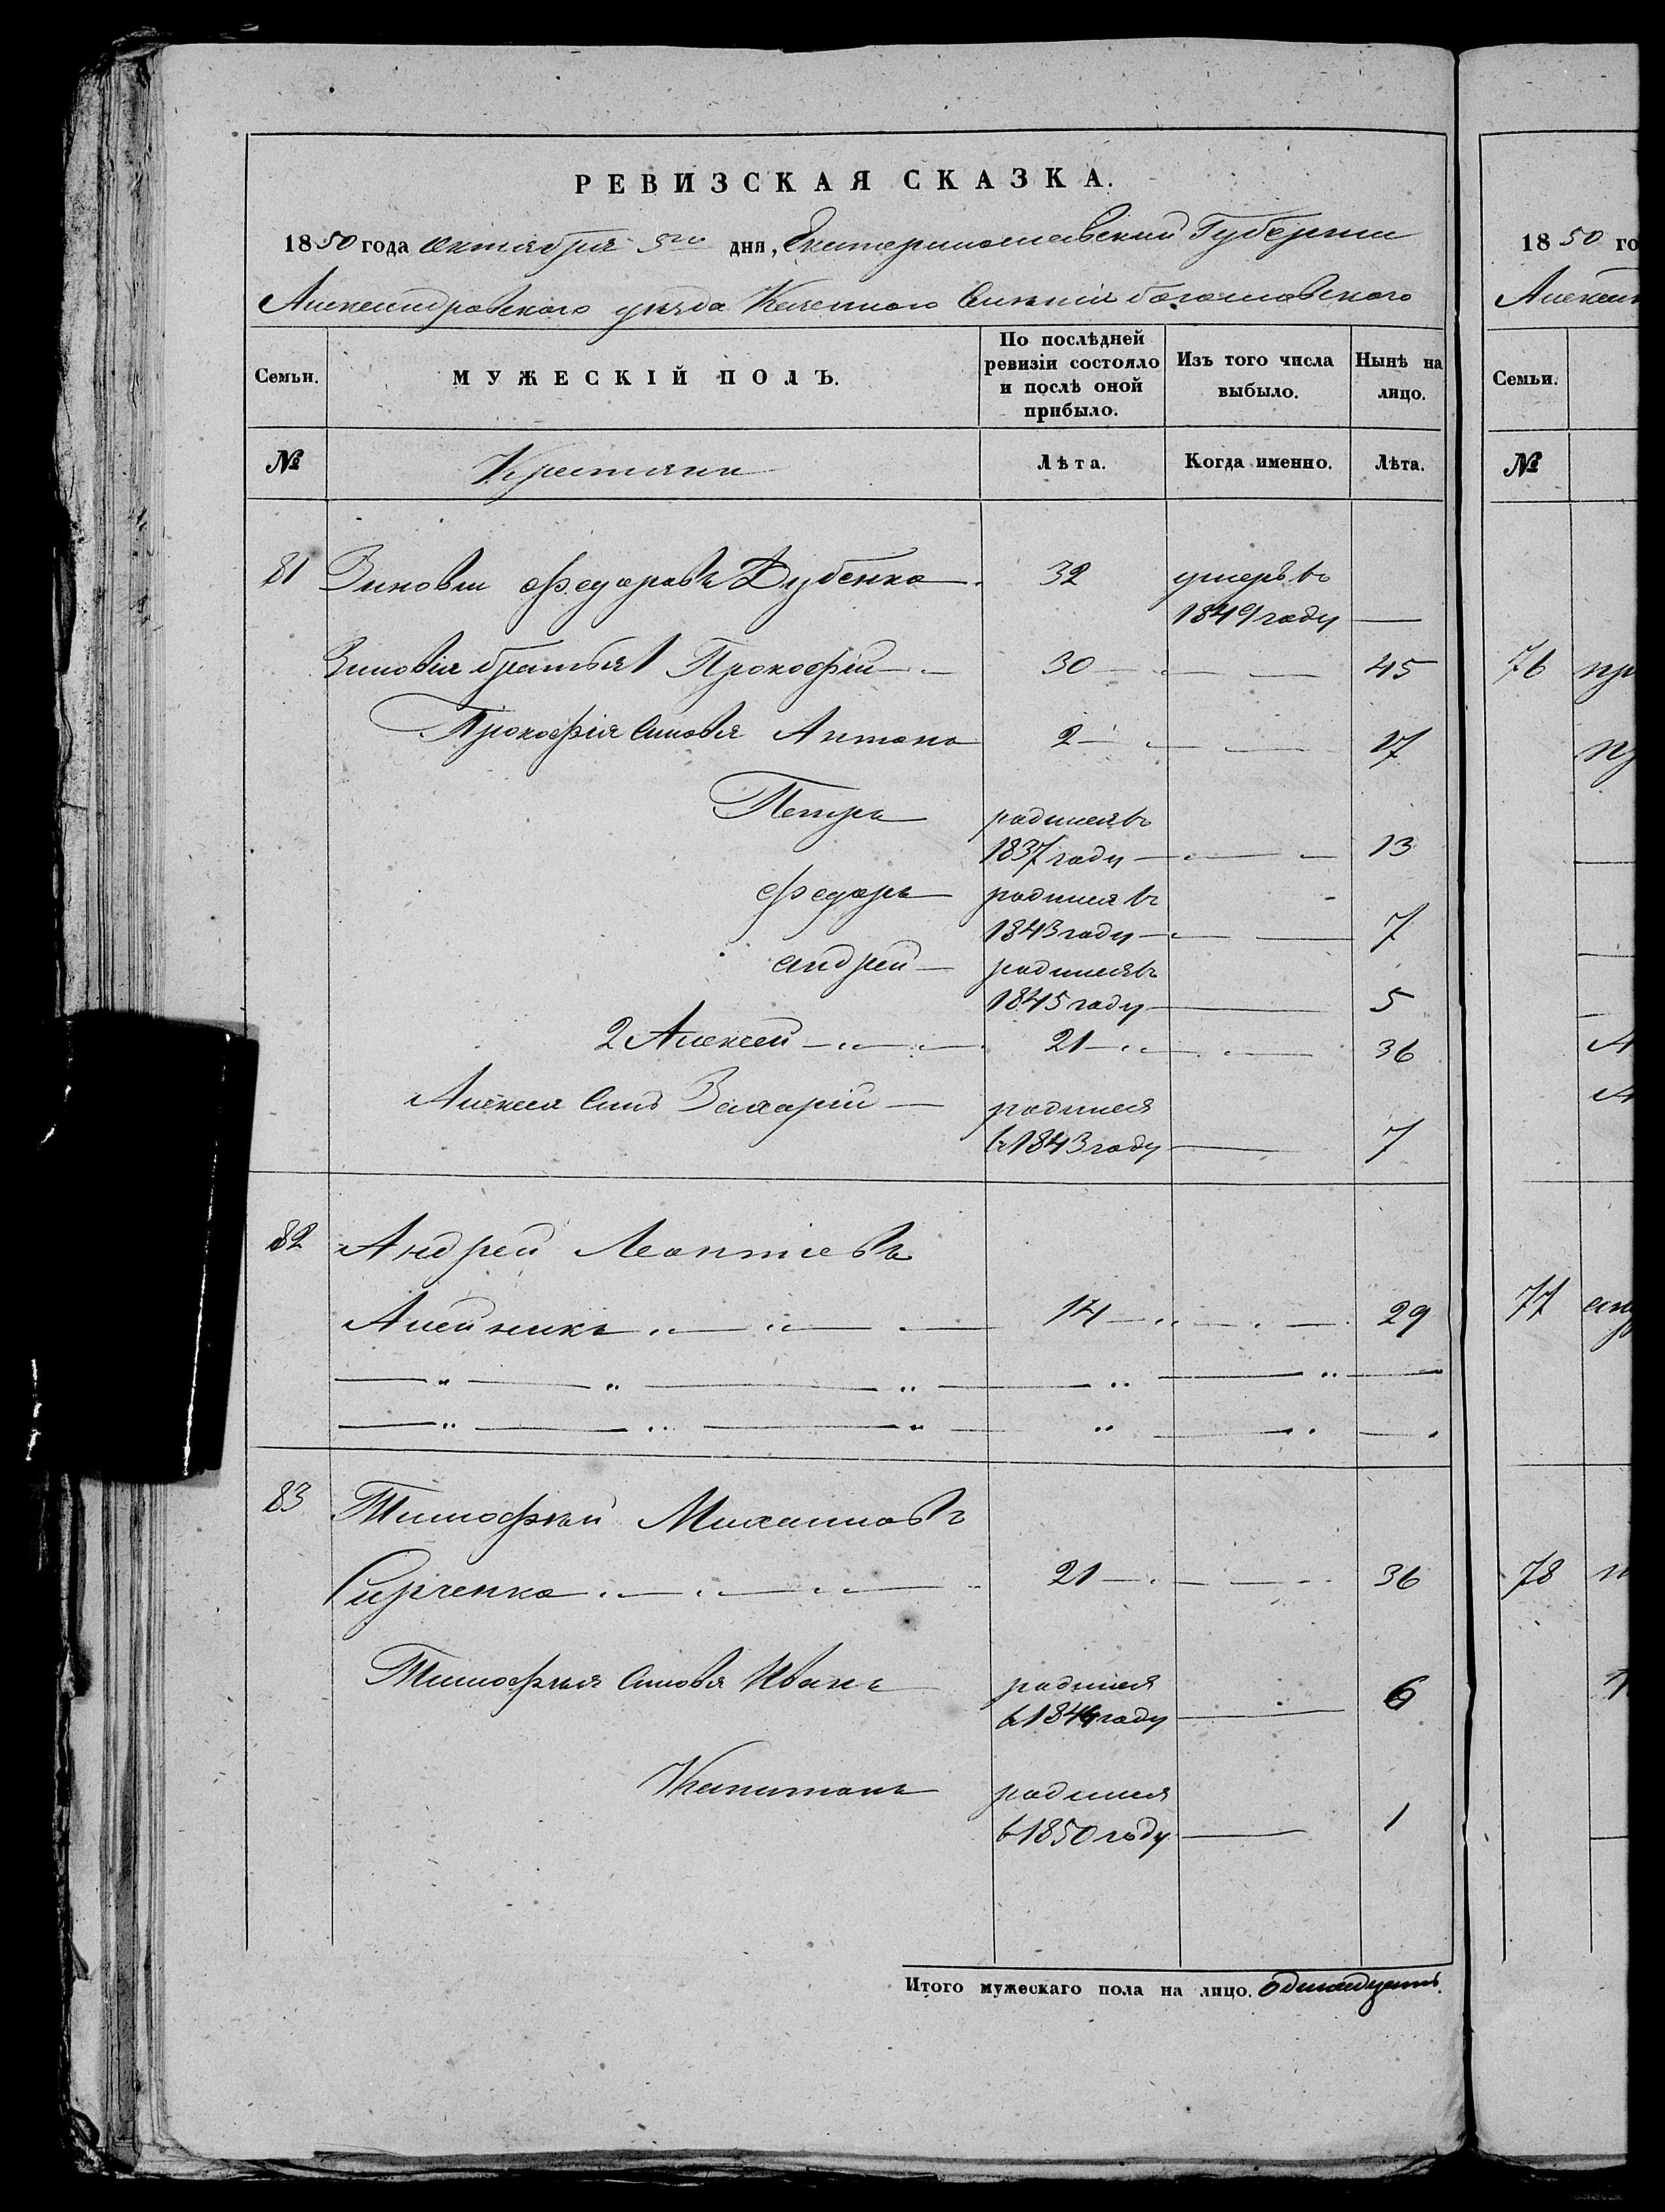 РЕВИЗСКАЯ СКАЗКА.
1850 года октября 5го дня, Екатеринославской Губернии
Александровского уезда Казенного Селения богословского
Семьи. МУЖЕСКІЙ ПОЛЪ. По послѣдней ревизіи состояло и послѣ оной прибыло. Изъ того числа выбыло. Нынѣ на лицо.
№ Крестяни Лѣта. Когда именно. Лѣта.
81 Зиновіи Федоровъ Дубенко 32 умеръ въ
1849 году —
Зиновія братья 1 Прокофій 30 45
Прокофія синовя Антонъ 2 17
Петръ родился въ
1837 году 13
Федоръ родился въ
1843 году 7
андрей родился въ
1845 году 5
2 Алексей 21 36
Алексея синъ Захарій родился
въ 1843 году 7
82 Андрей Леонтіевъ
Алейникъ 14 29
83 Тимофѣй Михаиловъ
Сирченко 21 36
Тимофѣя синовя Иванъ родился
въ 1844 году 6
Капитонъ родился
в 1850 году 1
Итого мужескаго пола на лицо. одинадцать.
18 50 го
Алексан
Семьи.
№
76 пр
77 анд
78